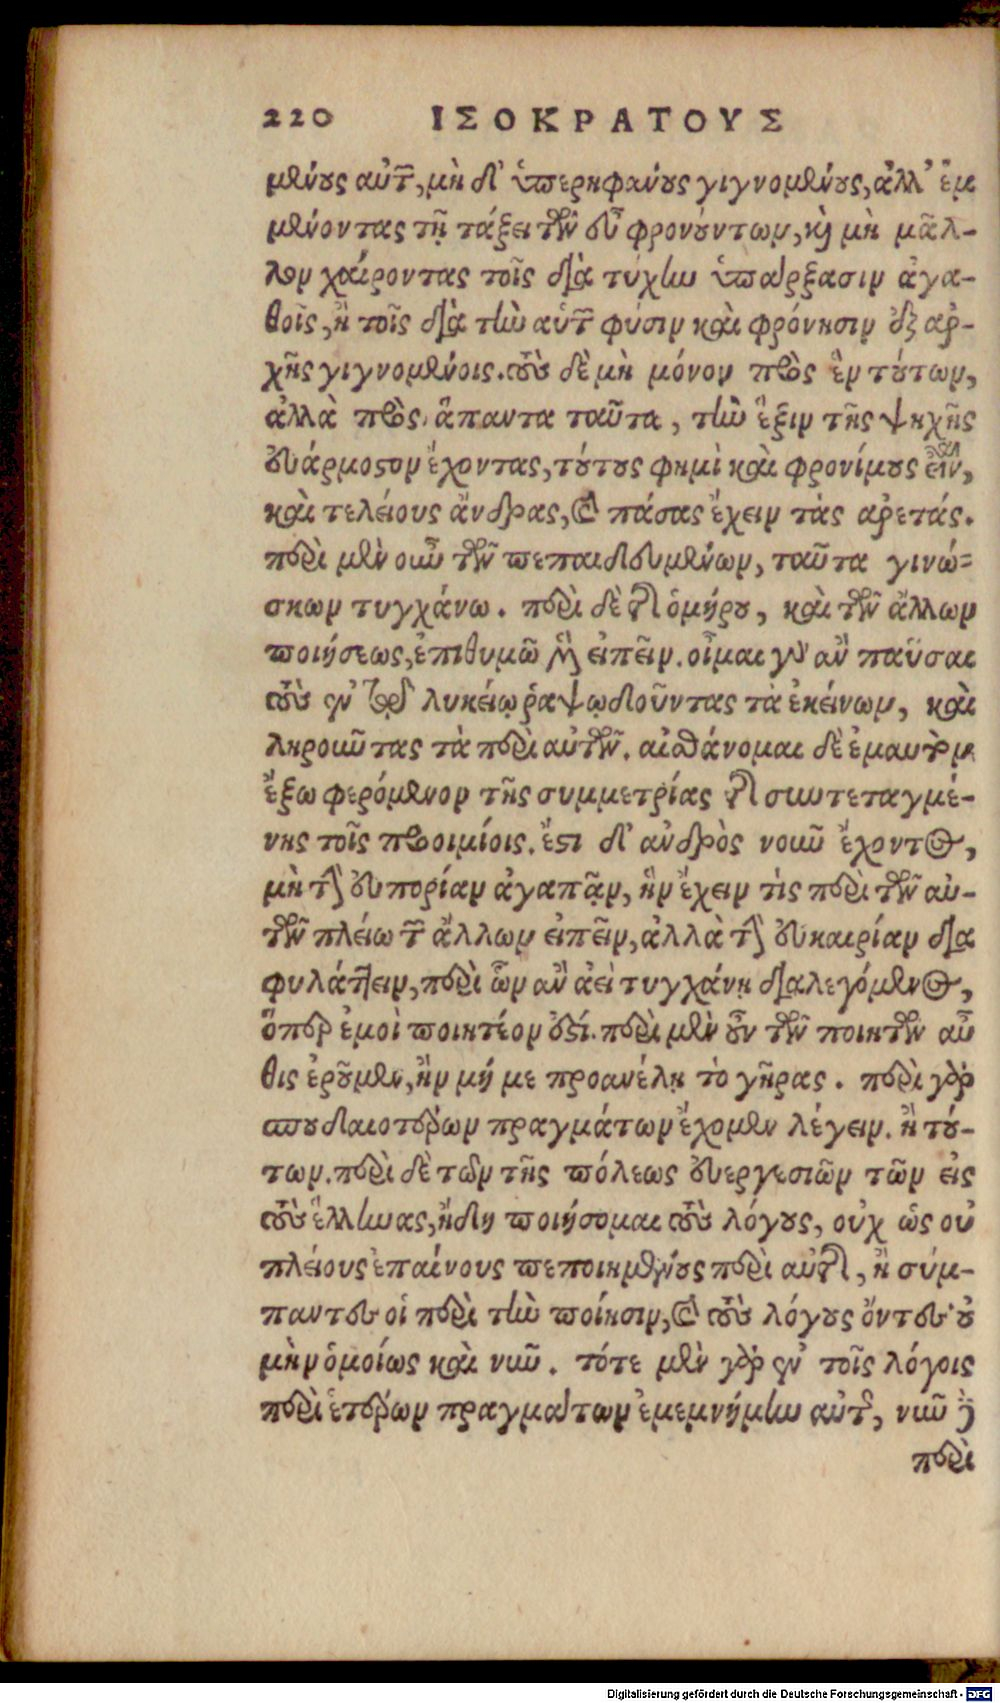 220 ΙΣΟΚΡΑΤΟΥΣ
μένους αὐτῶν, μὴ δ' ὑπερηφάνους γιγνομένους, ἀλλ' ἐμ
μένοντας τῇ τάξει τῶν εὖ φρονούντων, καὶ μὴ μᾶλ-
λον χαίροντας τοῖς διὰ τύχην ὑπάρξασιν ἀγα-
θοῖς, ἢ τοῖς διὰ τὴν αὑτῶν φύσιν καὶ φρόνησιν ἐξ αρ-
χῆς γιγνομένοις. τοὺς δὲ μὴ μόνον πρὸς ἓν τούτων,
ἀλλὰ πρὸς ἅπαντα ταῦτα, τὴν ἕξιν τῆς ψηχῆς
εὐάρμοστον ἔχοντας, τούτους φημὶ καὶ φρονίμους εἶναι,
καὶ τελείους ἄνδρας, καὶ πάσας ἔχειν τὰς αρετάς.
περὶ μὲν οὖν τῶν πεπαιδευμένων, ταῦτα γινώ-
σκων τυγχάνω. περὶ δὲ τῆς ὁμήρου, καὶ τῶν ἄλλων
ποιήσεως, ἐπιθυμῶ μὲν εἰπεῖν. οἶμαι γὰρ ἂν παῦσαι
τοὺς ἐν τῷ λυκείῳ ῥαψῳδοῦντας τὰ ἐκείνων, καὶ
ληροῦντας τὰ περὶ αὐτῶν. αἰσθάνομαι δὲ ἐμαυτὸν
ἔξω φερόμενον τῆς συμμετρίας τῆς συντεταγμέ-
νης τοῖς προιμίοις. ἔστι δ' ἀνδρὸς νοῦν ἔχοντος,
μὴ τὴν εὐπορίαν ἀγαπᾷν, ἣν ἔχειν τὶς περὶ τῶν αὐ-
τῶν πλείω τῶν ἄλλων εἰπεῖν, ἀλλὰ τὴν εὐκαιρίαν δια
φυλάττειν, περὶ ὧν ἂν ἀεὶ τυγχάνῃ διαλεγόμενος,
ὅπερ ἐμοὶ ποιητέον ἐστί. περὶ μὲν οὖν τῶν ποιητῶν αὖ
θις ἐροῦμεν, ἢν μή με προανέλῃ τὸ γῆρας. περὶ γὰρ
σπουδαιοτέρων πραγμάτων ἔχομεν λέγειν. ἢ τού-
των. περὶ δὲ τῶν τῆς πόλεως εὐεργεσιῶν τῶν εἰς
τοὺς ἕλληνας, ἤδη ποιήσομαι τοὺς λόγους, οὐχ ὡς οὐ
πλείους ἐπαίνους πεποιημένους περὶ αὐτῆς, ἢ σύμ-
παντες οἱ περὶ τὴν ποίησιν, καὶ τοὺς λόγους ὄντες· οὐ
μὴν ὁμοίως καὶ νῦν. τότε μὲν γὰρ ἐν τοῖς λόγοις
περὶ ἑτέρων πραγμάτων ἐμεμνήμην αὐτῆς, νῦν δὲ
περὶ
Digitalisierung gefördert durch die Deutsche Forschungsgemeinschaft - DFG